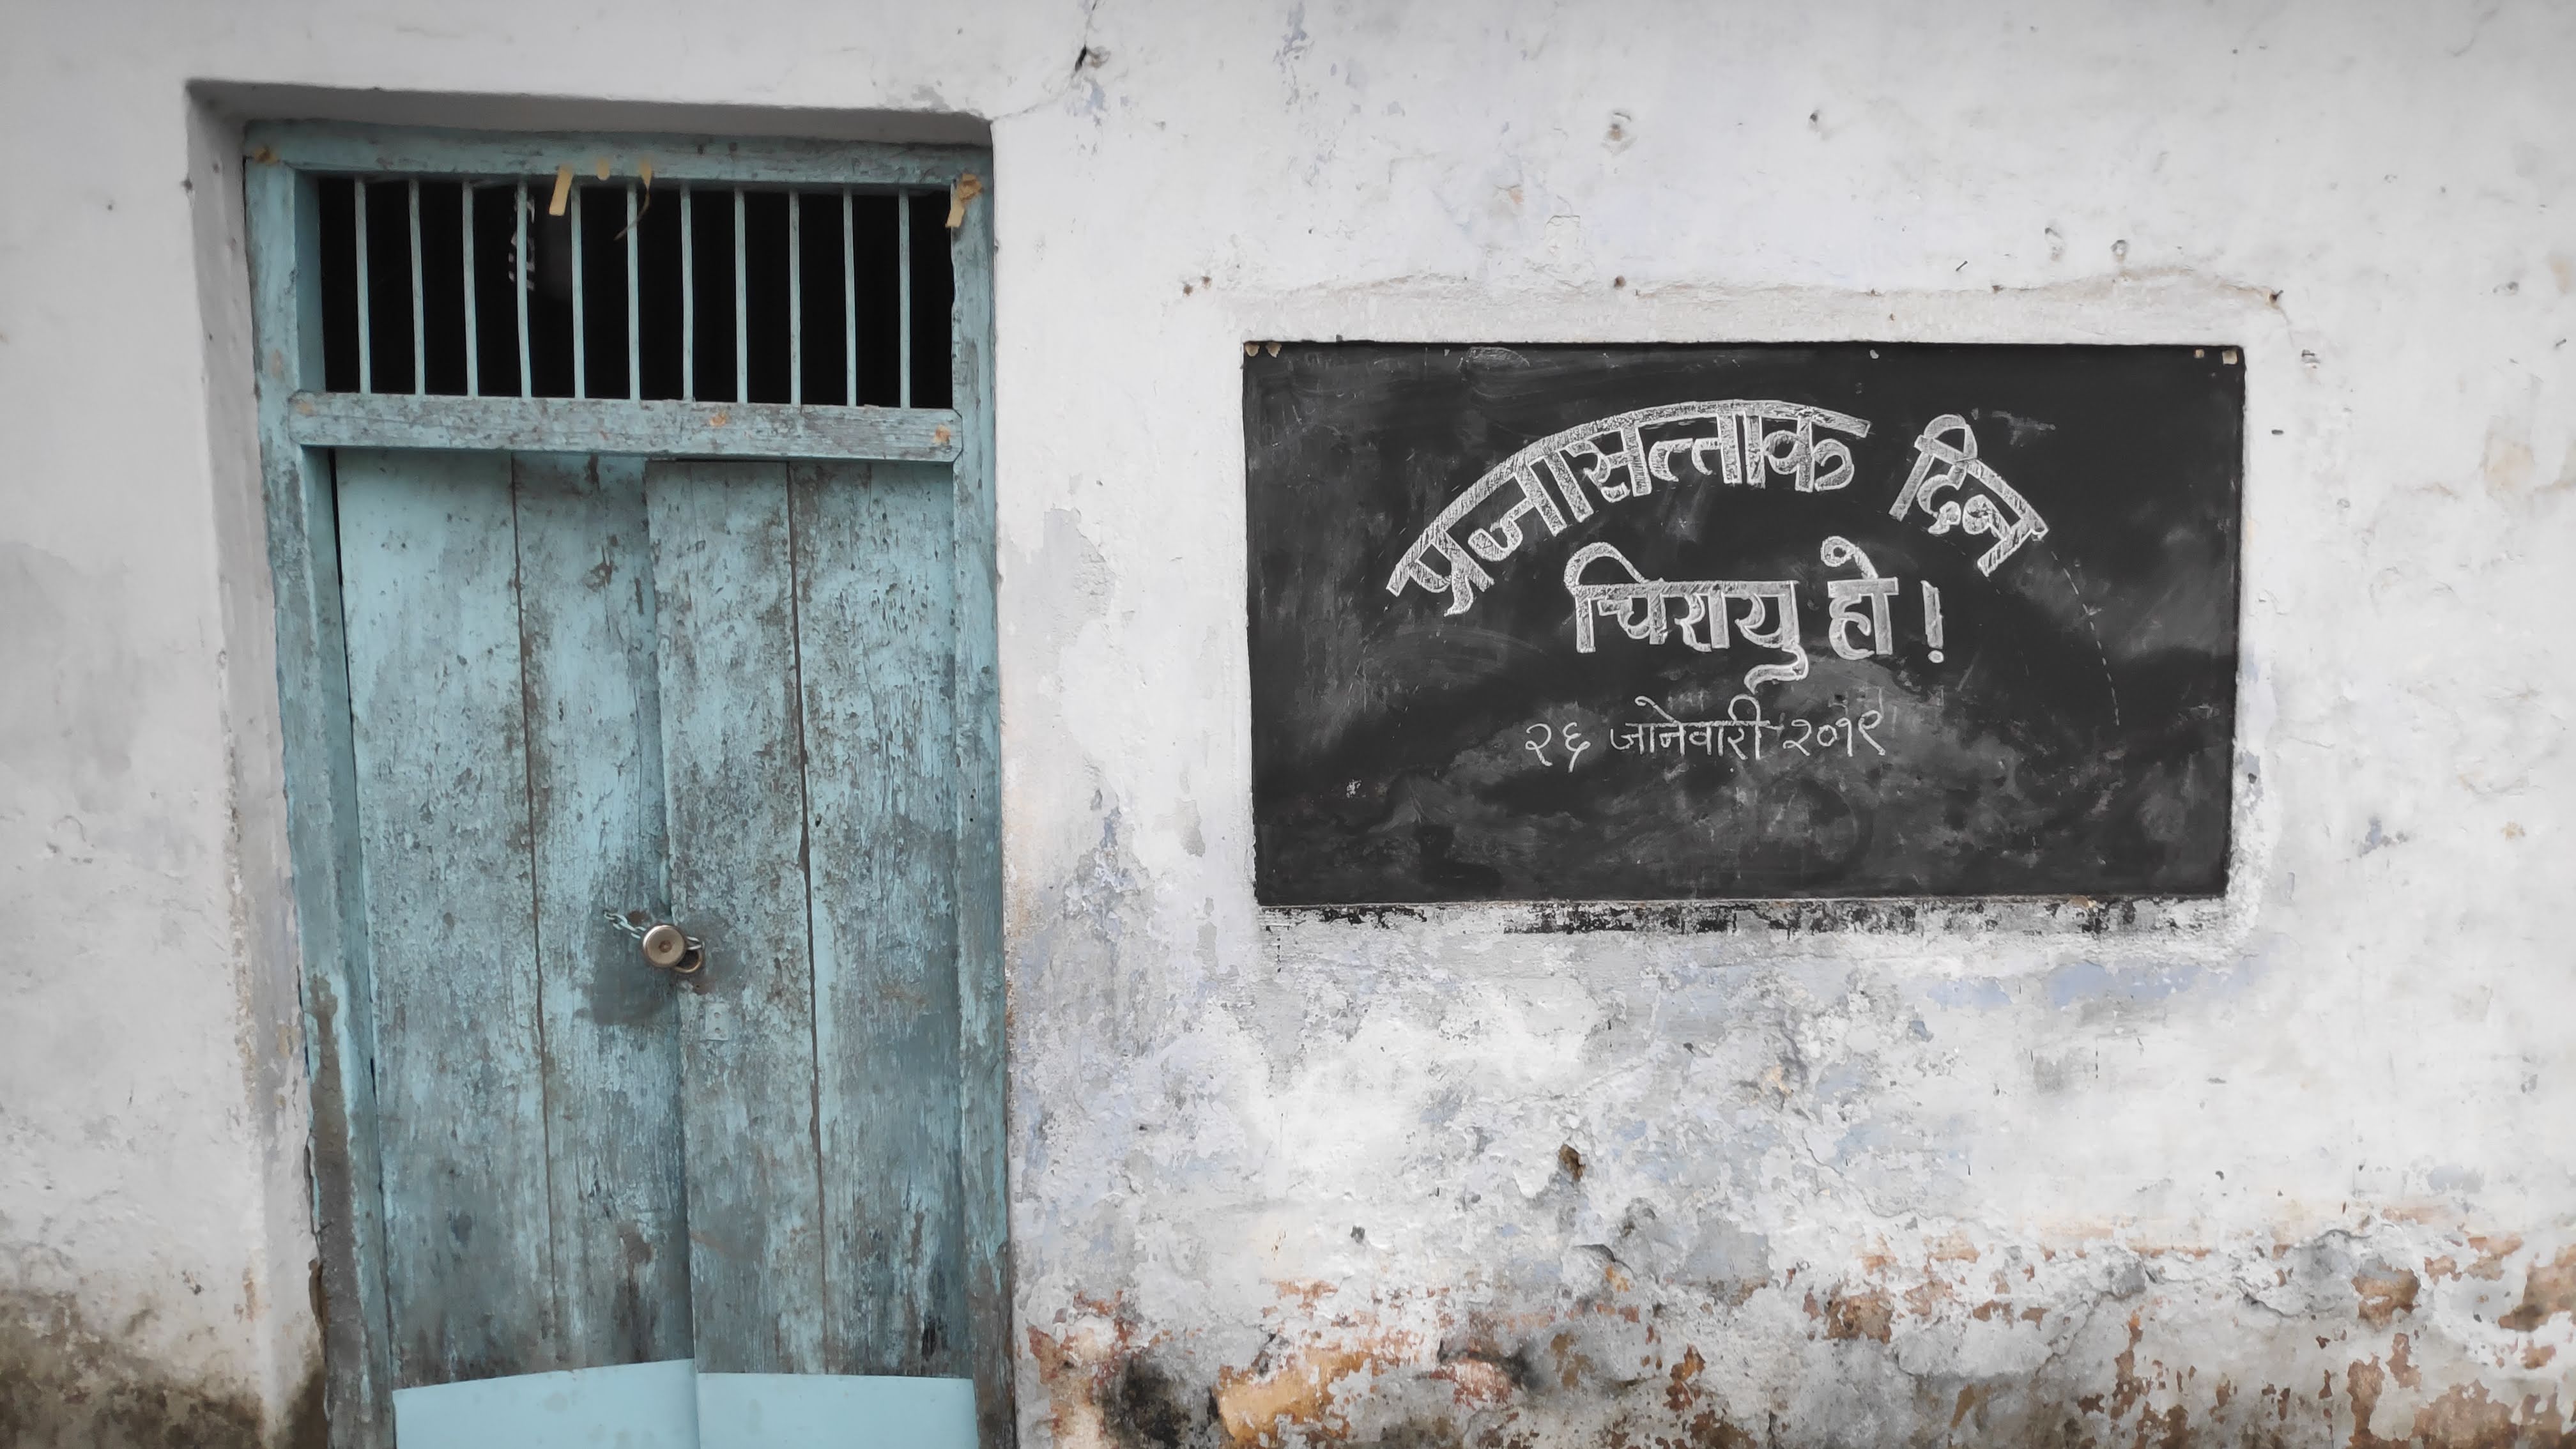 प्रजासत्ताक दिन
चिरायु हो !
२६ जानेवारी २०१९